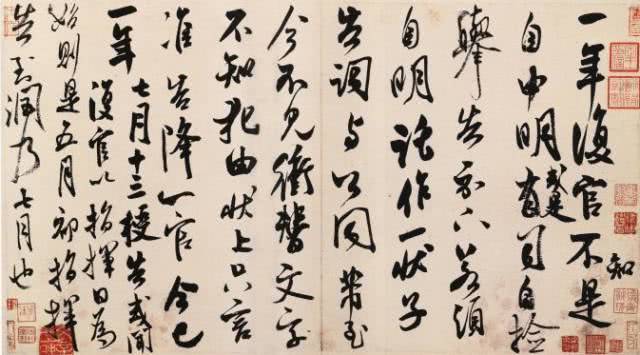 知
一年復官不是
自申明或是有司自檢
舉告示下若須
自明託作一狀子
告調与公同
今不見衝替文字
不知犯由狀上只言
准告降一官今已
一年七月十三授告或聞
復官以指揮日為
始則是五月初指揮
告到潤乃七月也